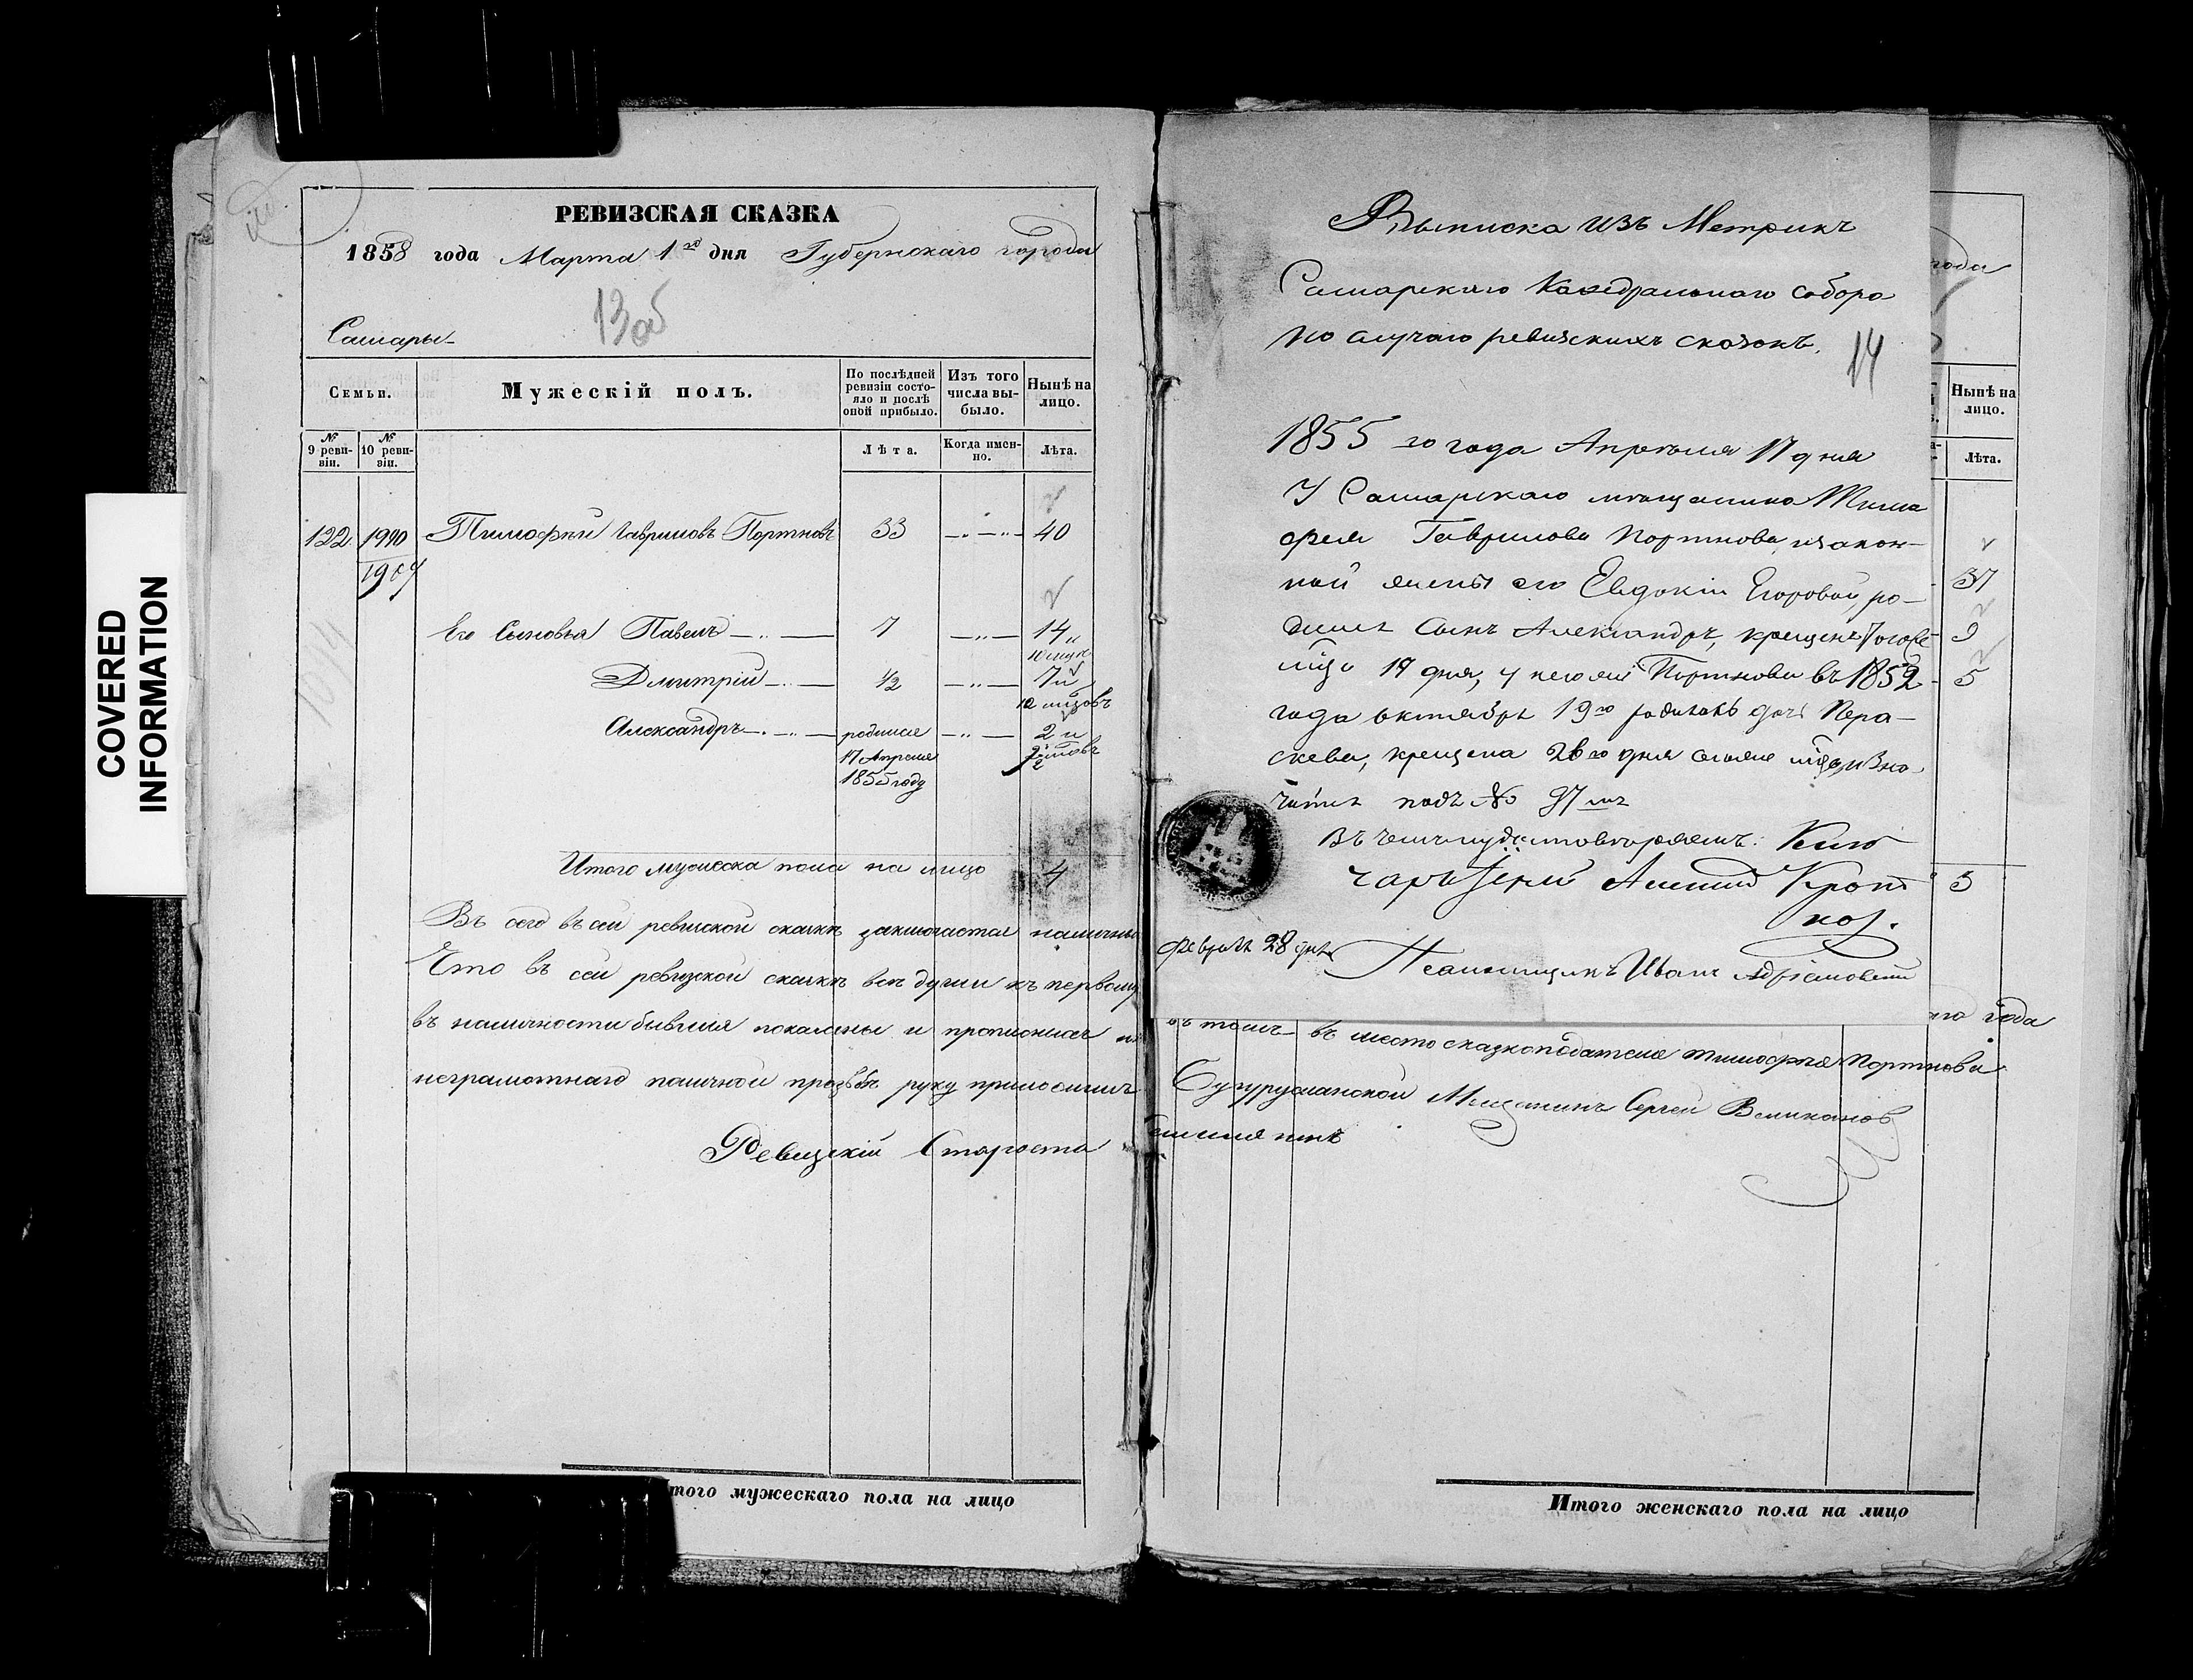 COVERED
INFORMATION
РЕВИЗСКАЯ СКАЗКА
1858 года Марта 1го дня Губернскаго города
13об
Самары
Семьи.
Мужескій полъ.
По послѣдней ревизіи состояло и послѣ оной прибыло.
Изъ того числа выбыло.
Нынѣ на лицо.
№ 9 ревизіи.
№ 10 ревизіи.
Лѣта.
Когда именно.
Лѣта.
122 1990 Тимофѣй Гавриловъ Портновъ 33 40
1907
Его Сыновья Павелъ 7 14
Дмитрій 1/2 7 и
10 мцовъ
Александръ родился 2 и
17 Апреля
1855 году
Итого мужеска пола на лицо 4
Въ сего въ сей ревизской сказкѣ заключается
Что въ сей ревизской сказкѣ всѣ души къ первому
въ наличности бывшия показаны и
неграмотнаго личной прозьбѣ руку приложилъ
Ревизскій Староста
Итого мужескаго пола на лицо
Выписка изъ Метрикъ
Самарскаго Каѳедральнаго собора
по случаю ревизскихъ сказокъ.
14
1855 го года Апрѣля 17 дня
У Самарскаго мѣщанина Тимо
фея Гаврилова Портнова, изакон-
ной жены его Евдокіи Егоровой, ро-
дился Сынъ Александръ, крещенъ тогоже
мцa 19 дня, у него же Портнова въ 1852
года октября 19го родилась дочь Пера-
скева, крещена 26го дня
чится подъ № 97мъ
Въ чемъ и удостовѣряемъ: Клю
чарь Іерей Алексий Кроп
ков.
Февраля 28 дня
Псаломщикъ Иванъ
года
Нынѣ на лицо.
Лѣта.
37
9
5
3
года
въ томъ въ место сказкоподателя тимофея Портнова
Бугурусланской Мещанинъ Сергей Великанов
Итого женскаго пола на лицо